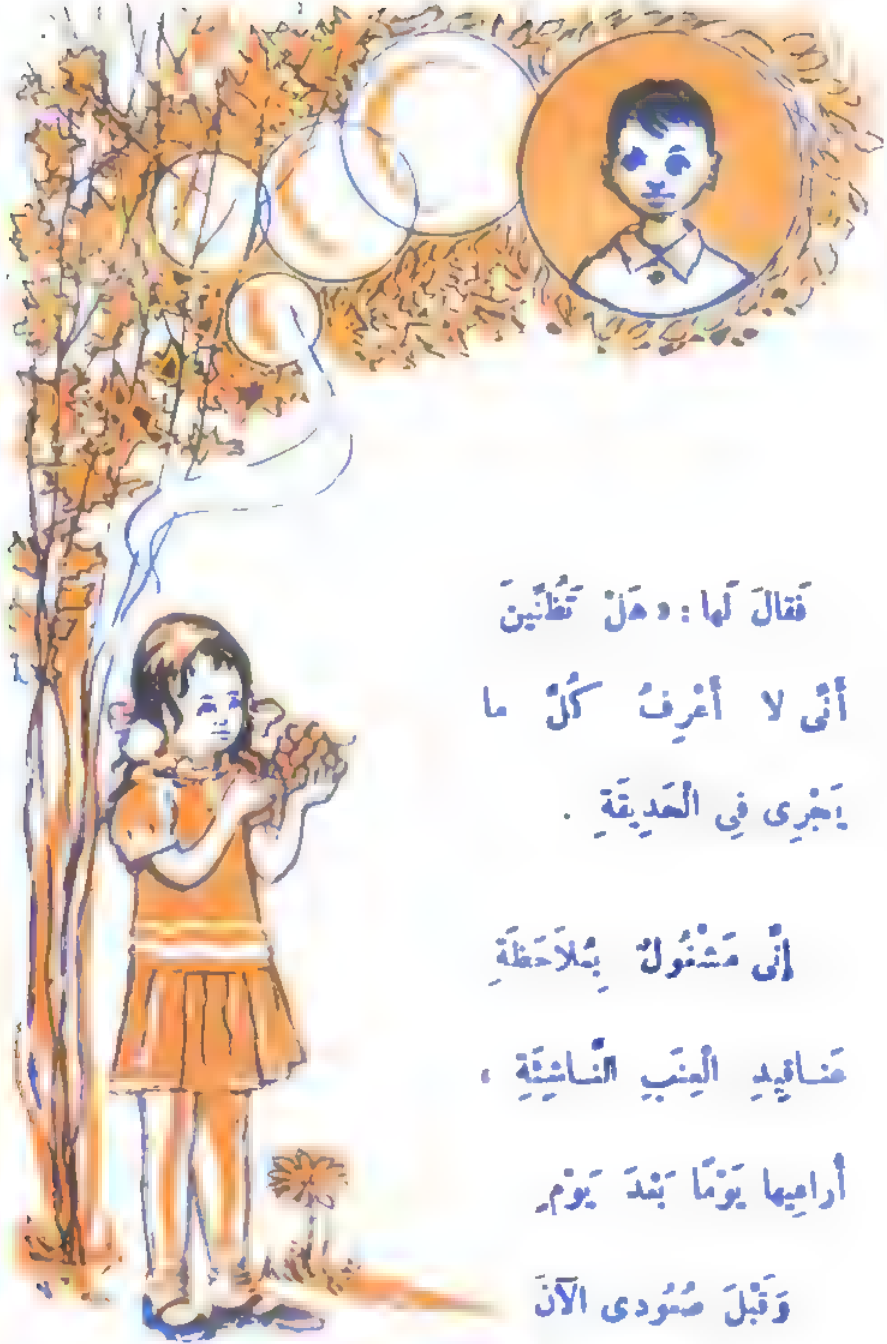 فَقالَ لَها: «هَلْ تَظُنِّينَ
أَنِّى لا أَعْرِفُ كُلَّ ما
يَجْرِى فِى الْحَدِيقَةِ .
إِنِّى مَشْغُولٌ بِمُلاَحَظَةِ
عَنـاقِيدِ الْعِنَبِ النَّـاشِئَةِ ،
أُراعِيها يَوْمًا بَعْدَ يَوْمٍ.
وَقَبْلَ صُعُودِى الآنَ